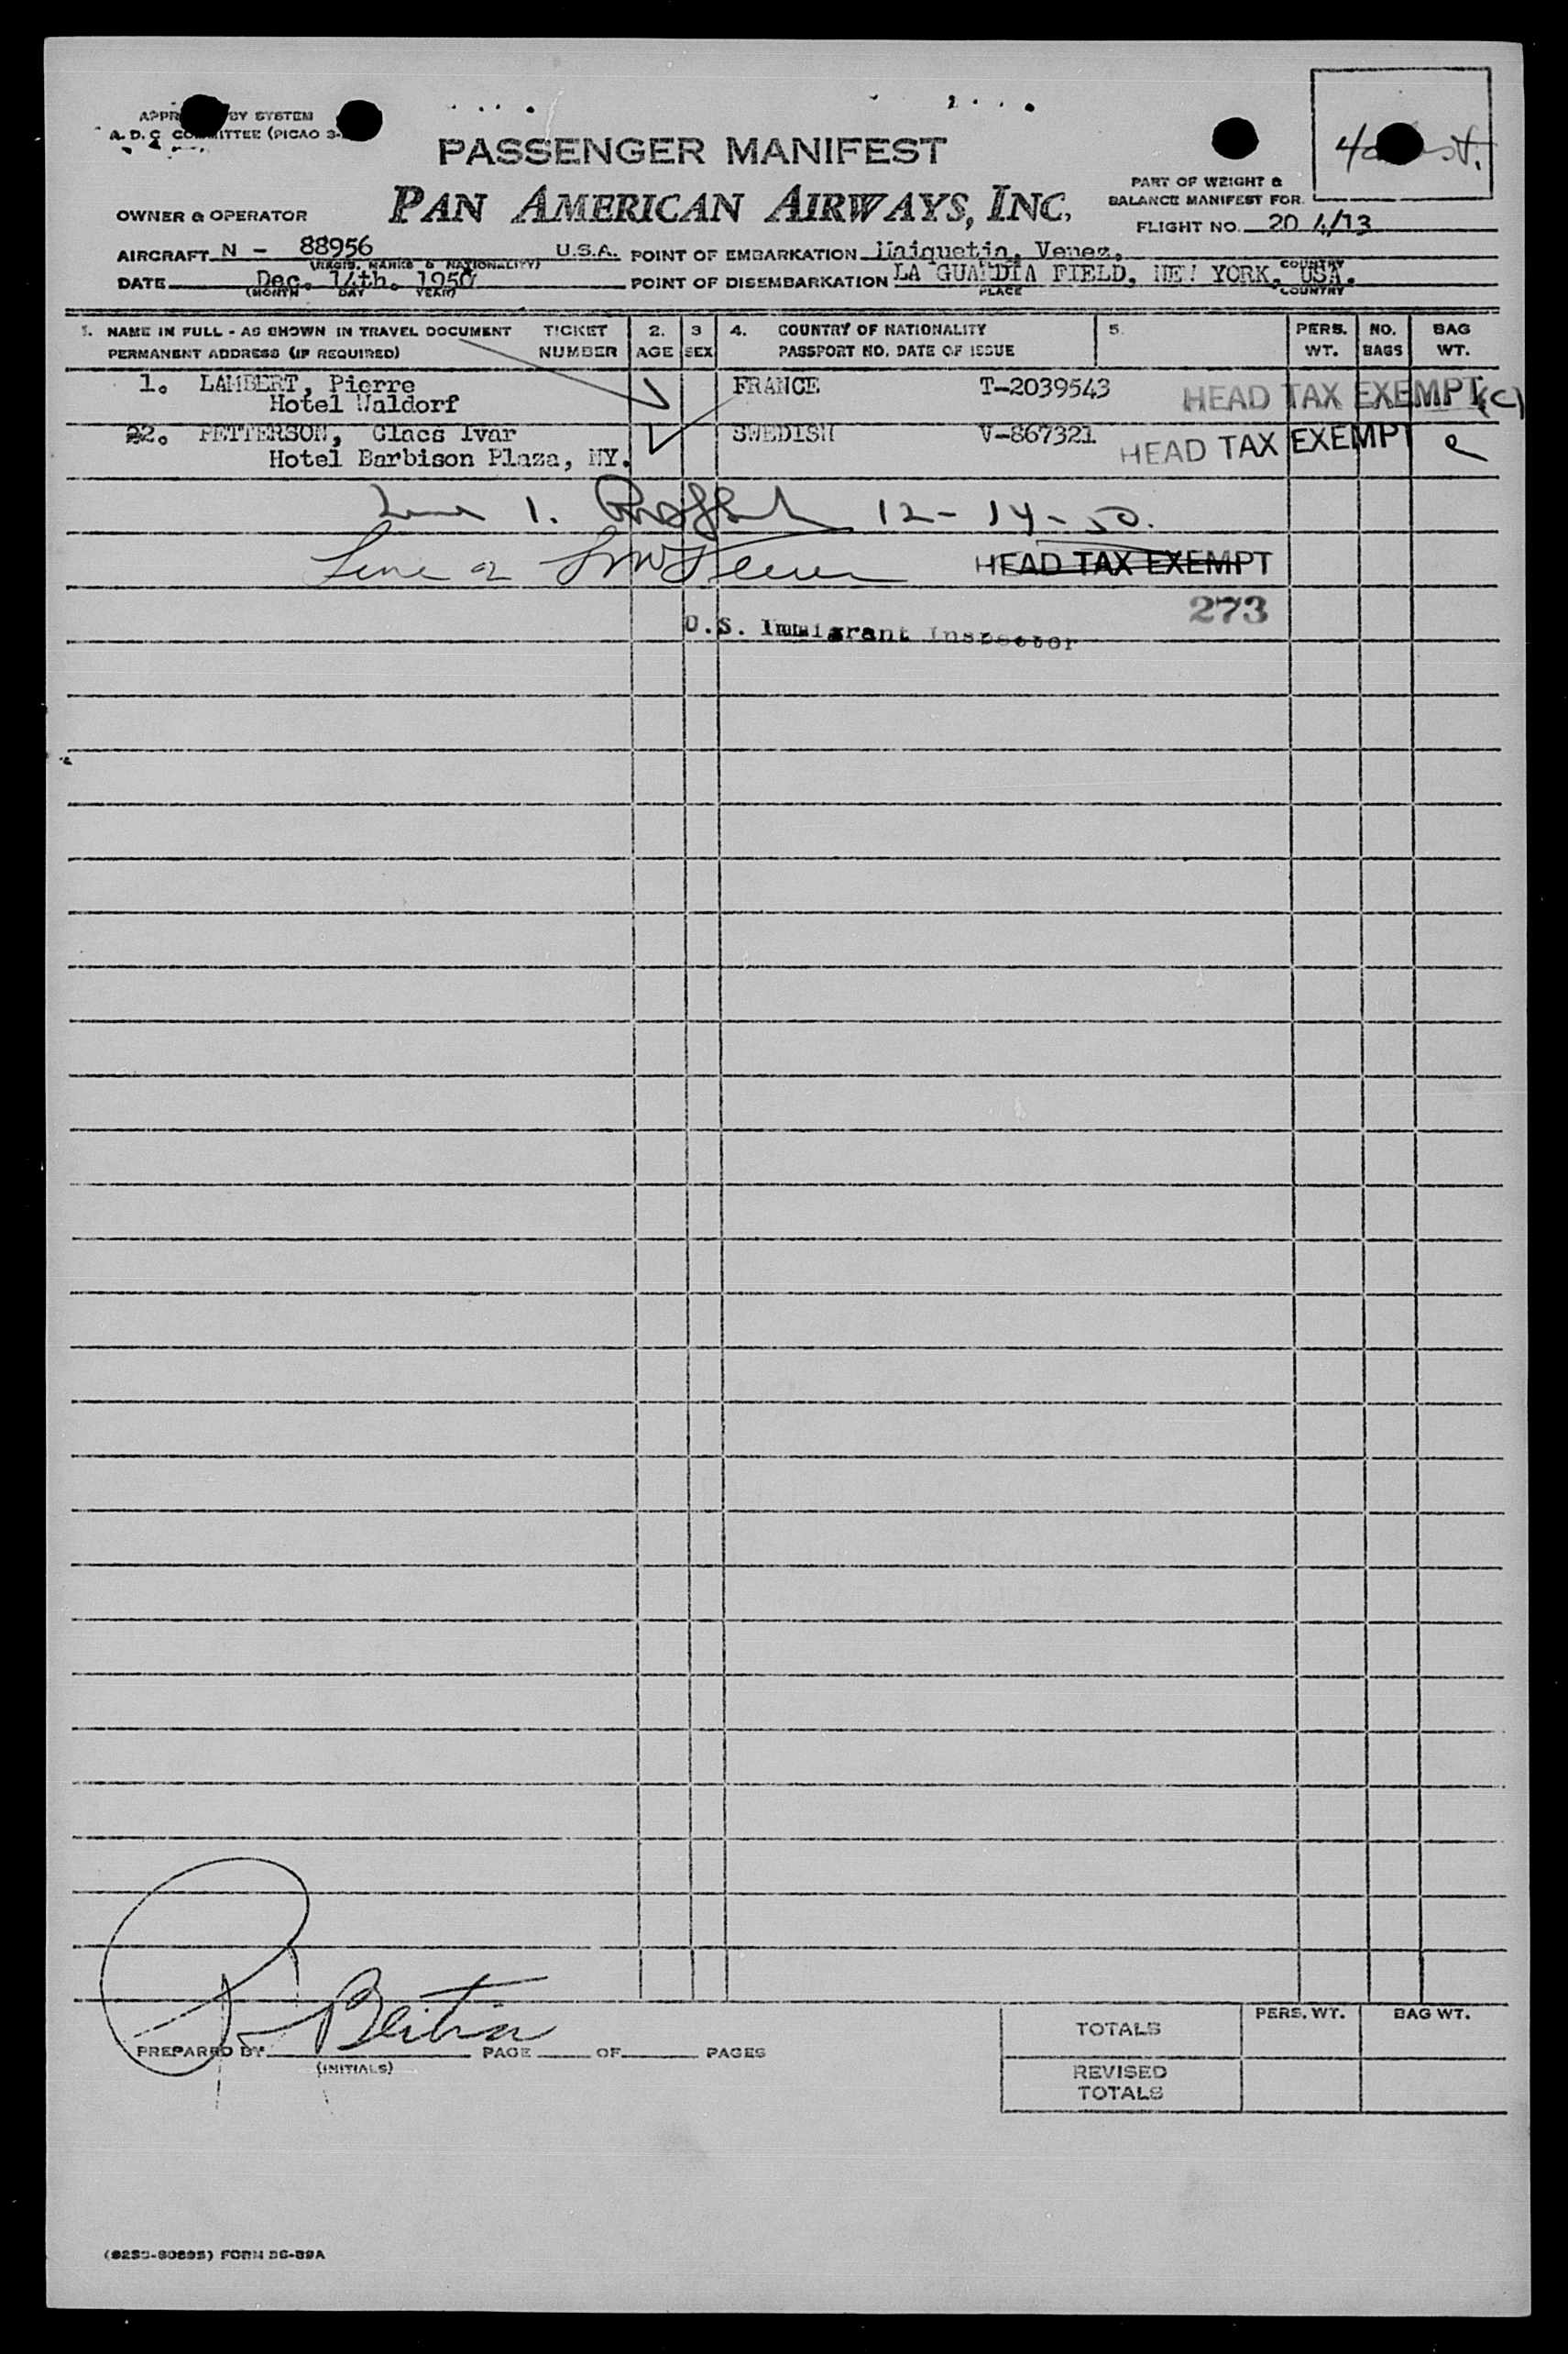 BY SYSTEM
A. D. C. COMMITTEE (PICAO 3-
PASSENGER MANIFEST
PART OF WEIGHT &
BALANCE MANIFEST FOR
OWNER & OPERATOR
PAN AMERICAN AIRWAYS, INC.
FLIGHT NO. 20 4/13
AIRCRAFT N - 88956 U.S.A. POINT OF EMBARKATION Maiquetia, Venez.
(REGIS. MARKS & NATIONALITY) COUNTRY
DATE Dec. 14th. 1950 POINT OF DISEMBARKATION LA GUARDIA FIELD, NEW YORK, USA.
(MONTH DAY YEAR) PLACE COUNTRY
1. NAME IN FULL - AS SHOWN IN TRAVEL DOCUMENT TICKET 2. 3 4. COUNTRY OF NATIONALITY 5. PERS. NO. BAG
PERMANENT ADDRESS (IF REQUIRED) NUMBER AGE SEX PASSPORT NO. DATE OF ISSUE WT. BAGS WT.
1. LAMBERT, Pierre FRANCE T-2039543 HEAD TAX EXEMPT (C)
Hotel Waldorf
22. PETTERSON, Claes Ivar SWEDISH V-867321 HEAD TAX EXEMPT
Hotel Barbison Plaza, NY.
Line 1. 12-14-50.
Line 2 HEAD TAX EXEMPT
273
U.S. Immigrant Inspector
PREPARED BY PAGE OF PAGES
(INITIALS)
TOTALS PERS. WT. BAG WT.
REVISED
TOTALS
FORM 36-39A